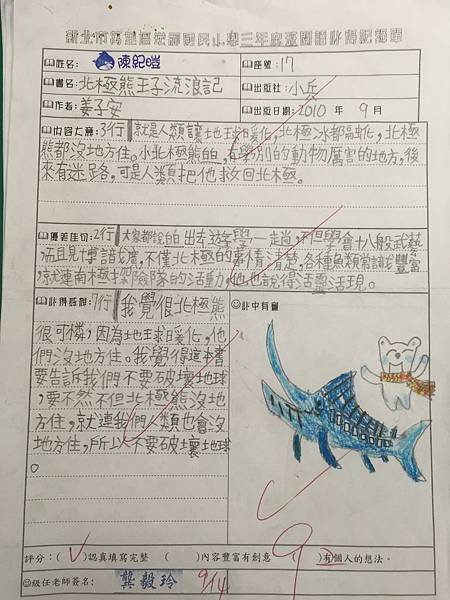 姓名： 陳紀暟 座號：17
書名：北極熊王子流浪記 出版社：小兵
作者：姜子安 出版日期：2010 年 9 月
內容大意：3行 就是人類讓地球暖化，北極冰都融化，北極
熊都沒地方住。小北極熊的，有學別的動物厲害的地方，後
來有迷路，可是人類把他救回北極。
優美佳句：2行 大家都說的出去遊學一走尚，不但學會十八般武藝
而且見博識廣，不僅北極的事情清楚，各種魚類常識豐富
，就連南極探險隊的活動，他也說得活靈活現。
心得感想：7行 我覺很北極熊
很可憐，因為地球暖化，他
們沒地方住。我覺得這本書
要告訴我們不要破壞地球
，要不然不但北極熊沒地
方住，就連我們人類也會沒
地方住，所以不要破壞地球
。
書中有畫
評分：( )認真填寫完整 ( )內容豐富有創意 ( )有個人的想法。
級任老師簽名： 龔毅玲 9/14